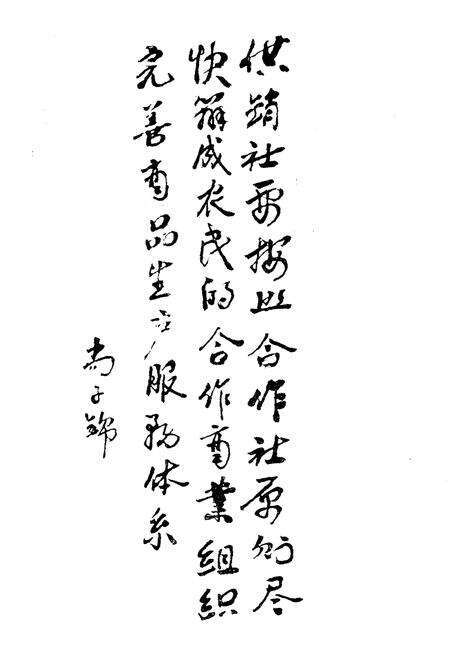 供销社要按照合作社原则尽
快辦成农民的合作商業组织
完善商品生产服務体系
尚子锦